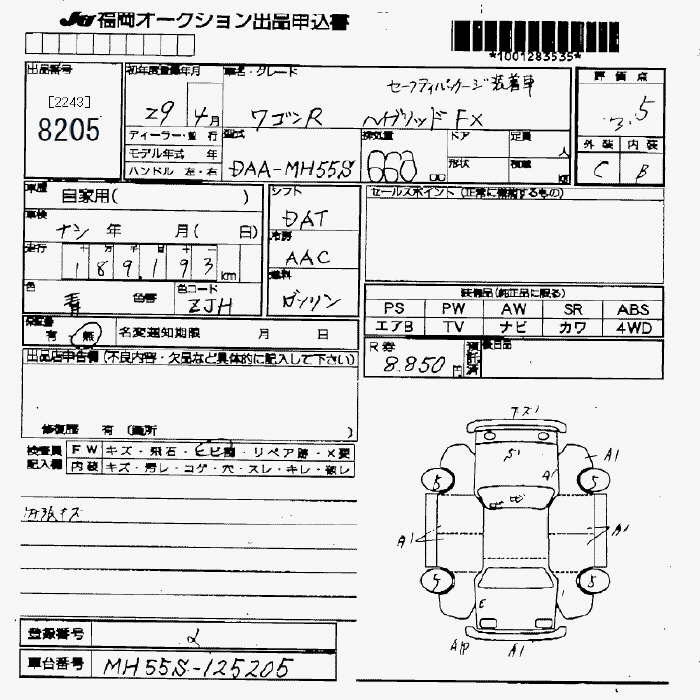 JU 福岡オークション出品申込書
*1001283535*
出品番号
[2243]
8205
初年度登録年月
29 4月
ディーラー・並行
モデル年式 年
ハンドル 左・右
車名・グレード
セーフティパッケージ装着車
ワゴンR ハイブリッド FX
型式
DAA-MH55S
排気量
660 cc
ドア
形状
定員
人
積載
評価点
3.5
外装 内装
C B
車歴 自家用( )
車検 ナシ 年 月( 日)
走行 十 万 千 百 十
189,193 km
色 青 色替
色コード
ZJH
シフト
DAT
冷房
AAC
燃料
ガソリン
セールスポイント(正常に機能するもの)
装備品(純正品に限る)
PS PW AW SR ABS
エアB TV ナビ カワ 4WD
保証書
有・無
名変通知期限 月 日
R券
8.850円
預託済
後日品
出品店申告欄(不良内容・欠品など具体的に記入して下さい)
修復歴 有(箇所 )
検査員記入欄
FW キズ・飛石・ヒビ割・リペア跡・X要
内装 キズ・汚レ・コゲ・穴・スレ・キレ・破レ
アズ1
S1
A1
A1
5 5
A1 A1
5 5
E
A1P A1
登録番号
車台番号 MH55S-125205